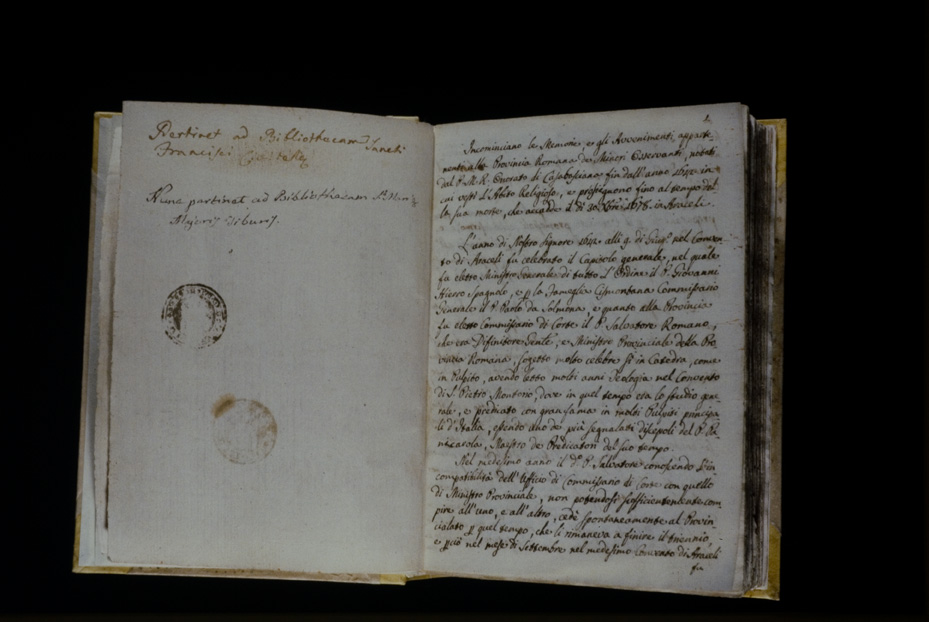 Pertinet ad Bibliothecam Sancti
Francisci
Nunc partinet ad Bibliothecam S. Mariæ
Majoris Tiburis.
1.
Incominciano le Memorie, e gli Avvenimenti, apparte-
nenti alla Provincia Romana de Minori Osservanti, notati
dal P. M. R. Onorato di Casabasiana fin dall'anno 1642 in
cui vestì l'Abito Religioso, e proseguono fino al tempo del
la sua morte, che accadde il dì 30. Xbre 1678. in Araceli.
L'anno di Nostro Signore 1642 alli 9. di Giugº nel Conven
to di Araceli fu celebrato il Capitolo generale, nel quale
fu eletto Ministro Generale di tutto L'Ordine il P. Giovanni
Hierro Spagnolo, e p la Fameglia Cismontana Commissario
Generale il P. Paolo da Solmona, e quanto alla Provincia
fu eletto Commissario di Corte il P. Salvatore Romano,
che era Difinitore Genle, e Ministro Provinciale della Pro
vincia Romana, sogetto molto celebre sì in Catedra, come
in Pulpito, avendo letto molti anni Teologia nel Convento
di S. Pietro Montorio, dove in quel tempo era lo studio gene
rale, e predicato con gran fama in molti Pulpiti principa
li d'Italia, essendo uno de più segnalati discepoli del P. Pa
nicarola, Maestro de Predicatori del suo tempo.
Nel medesimo anno il dº P. Salvatore conoscendo l'in
compatibilità dell'Uffizio di Commissario di Corte con quello
di Ministro Provinciale, non potendosi sofficientemente com
pire all'uno, e all'altro, cedè spontaneamente al Provin
cialato p quel tempo, che li rimaneva a finire il triennio,
e però nel mese di Settembre nel medesimo Convento di Araceli
fu